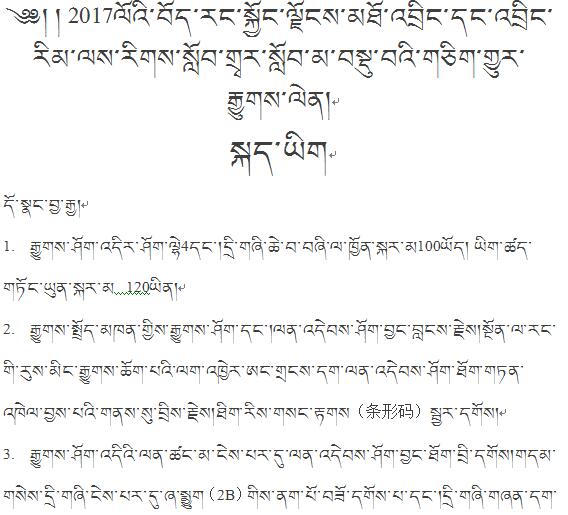 ༄༅།།2017ལོའི་བོད་རང་སྐྱོང་ལྗོངས་མཐོ་འབྲིང་དང་འབྲིང་
རིམ་ལས་རིགས་སློབ་གྲྭར་སློབ་མ་བསྡུ་བའི་གཅིག་གྱུར་
རྒྱུགས་ལེན།
སྐད་ཡིག
དོ་སྣང་བྱ་རྒྱུ།
1. རྒྱུགས་ཤོག་འདིར་ཤོག་ལྷེ4དང་།དྲི་གཞི་ཆེ་བ་བཞི་ལ་ཁྱོན་སྐར་མ100ཡོད། ཡིག་ཚད་
གཏོང་ཡུན་སྐར་མ 120ཡིན།
2. རྒྱུགས་སྤྲོད་མཁན་གྱིས་རྒྱུགས་ཤོག་དང་།ལན་འདེབས་ཤོག་བྱང་བླངས་རྗེས།སྔོན་ལ་རང་
གི་རུས་མིང་རྒྱུགས་ཆོག་པའི་ལག་འཁྱེར་ཨང་གྲངས་དག་ལན་འདེབས་ཤོག་ཐོག་གཏན་
འཁེལ་བྱས་པའི་གནས་སུ་བྲིས་རྗེས།ཐིག་རིས་གསང་རྟགས（条形码）སྦྱར་དགོས།
3. རྒྱུགས་ཤོག་འདིའི་ལན་ཚང་མ་ངེས་པར་དུ་ལན་འདེབས་ཤོག་བྱང་ཐོག་བྲི་དགོས།གདམ་
གསེས་དྲི་གཞི་ངེས་པར་དུ་ཞ་སྨྱུག（2B）གིས་ནག་པོ་བཟོ་དགོས་པ་དང་།དྲི་གཞི་གཞན་དག་